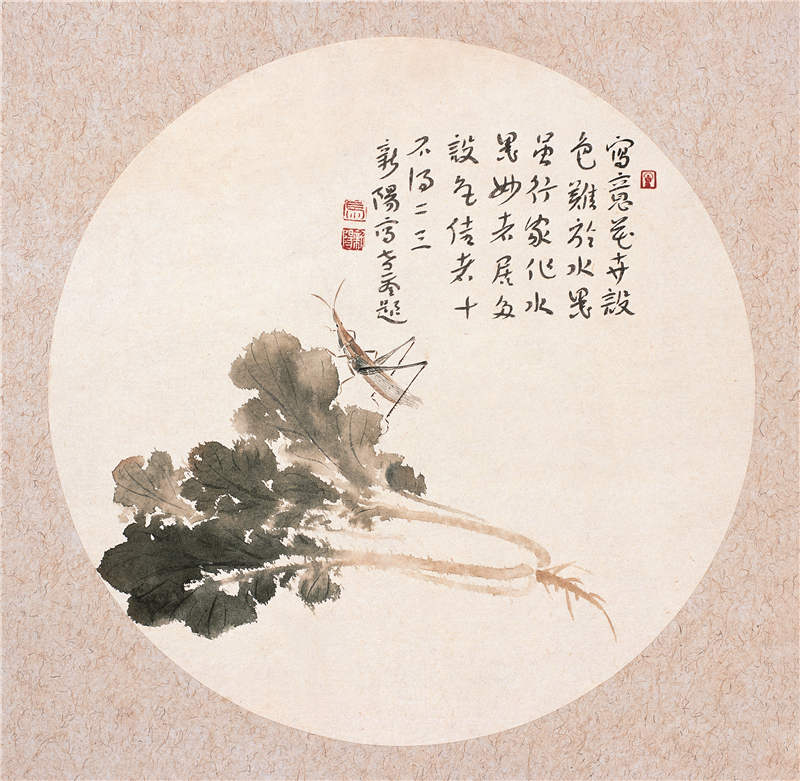 寫意花卉設
色難於水墨
虽行家作水
墨妙者居多
設色佳者十
不得二三
新陽寫並題